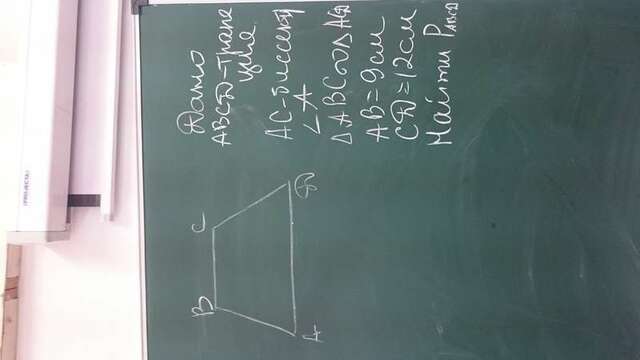 PROJECTA
B C
A D
Дано
ABCD-трапе
ция
AC-биссект
∠A
ΔABC∞ΔACD
AB=9см
CD=12см
Найти P_ABCD